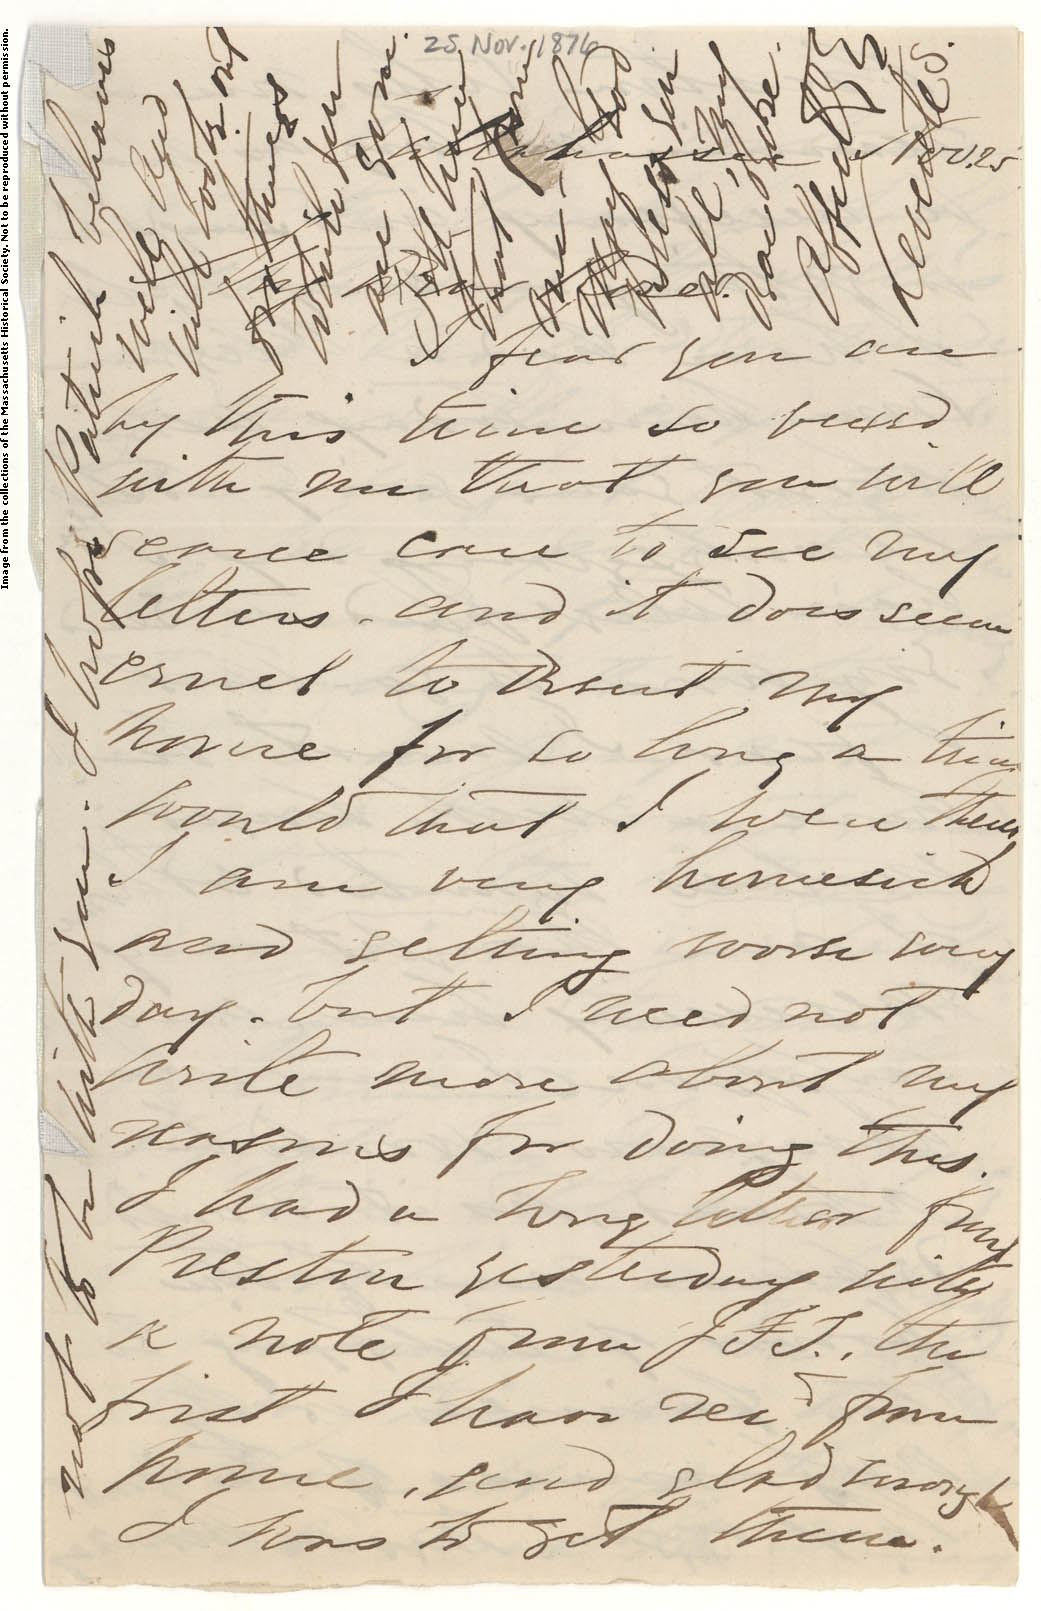 25 Nov. 1876
Tallahassee, Nov. 25
My dear
I fear you are
by this time so vexed
with me that you will
scarce care to see my
letters. and it does seem
cruel to desert my
house for so long a time
would that I were there
I am very homesick
and getting worse every
day. but I need not
write more about my
reasons for doing this.
I had a long letter from
Preston yesterday with
a note from J F J., the
first I have rec'd from
home, and glad enough
I was to get them.
not to be with you. I hope Patrick behaves
well and
will look out
for things
while you
are gone.
Image from the collections of the Massachusetts Historical Society. Not to be reproduced without permission.